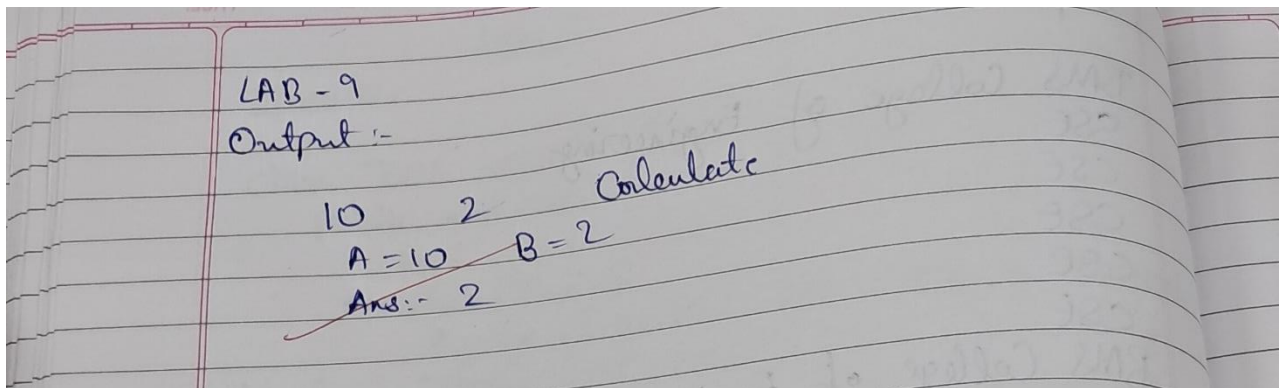 LAB - 9
Output :-
10 2 Calculate
A = 10 B = 2
Ans:- 2